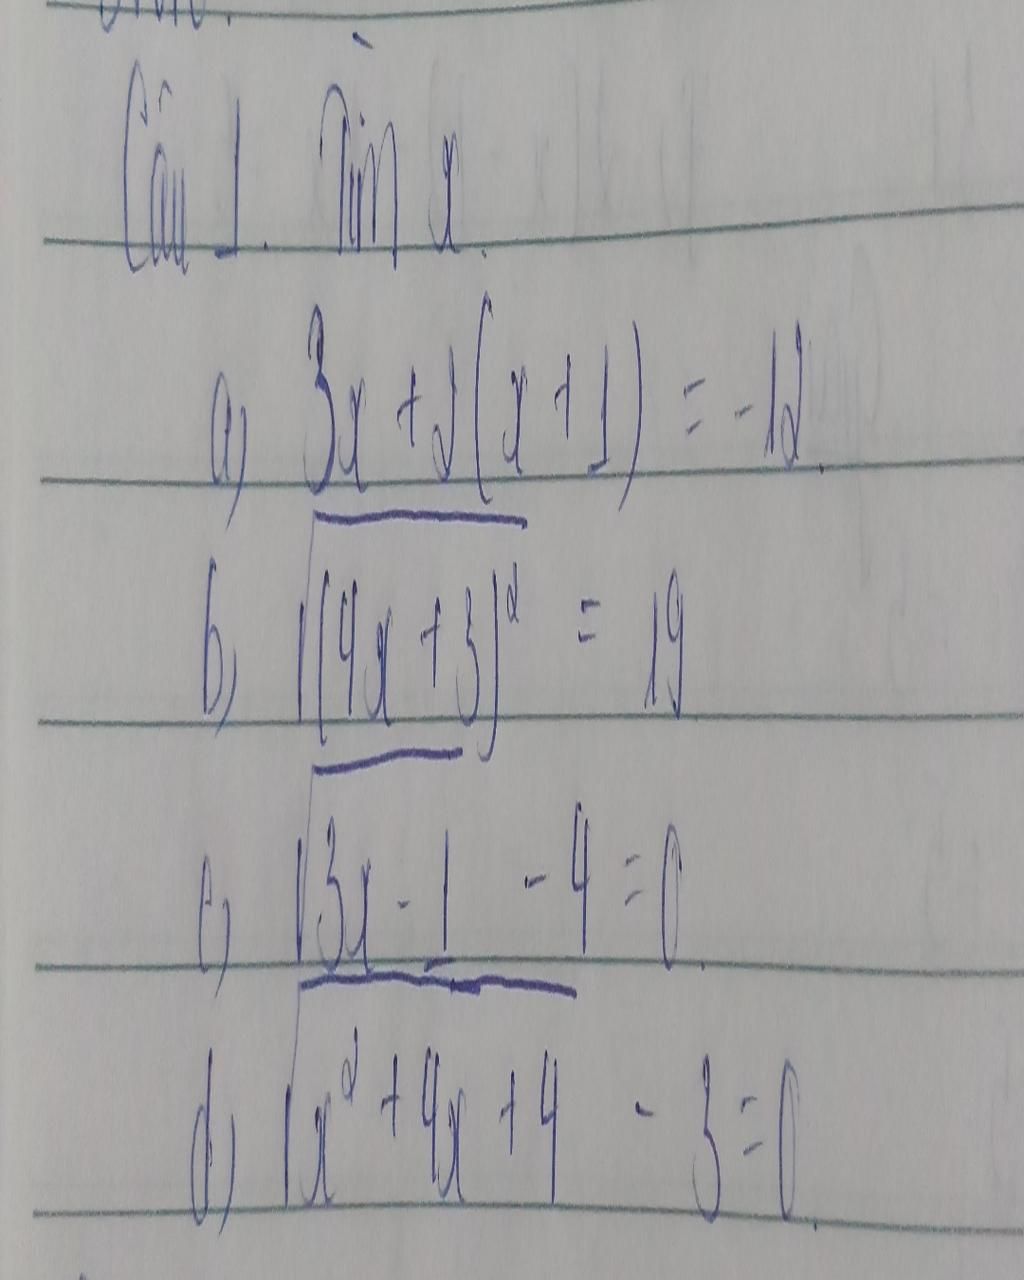 Câu 1. Tìm x.
a) 3x + 2(x + 1) = -12.
b) √(4x + 3)² = 19
c) √3x - 1 - 4 = 0.
d) √x² + 4x + 4 - 3 = 0.